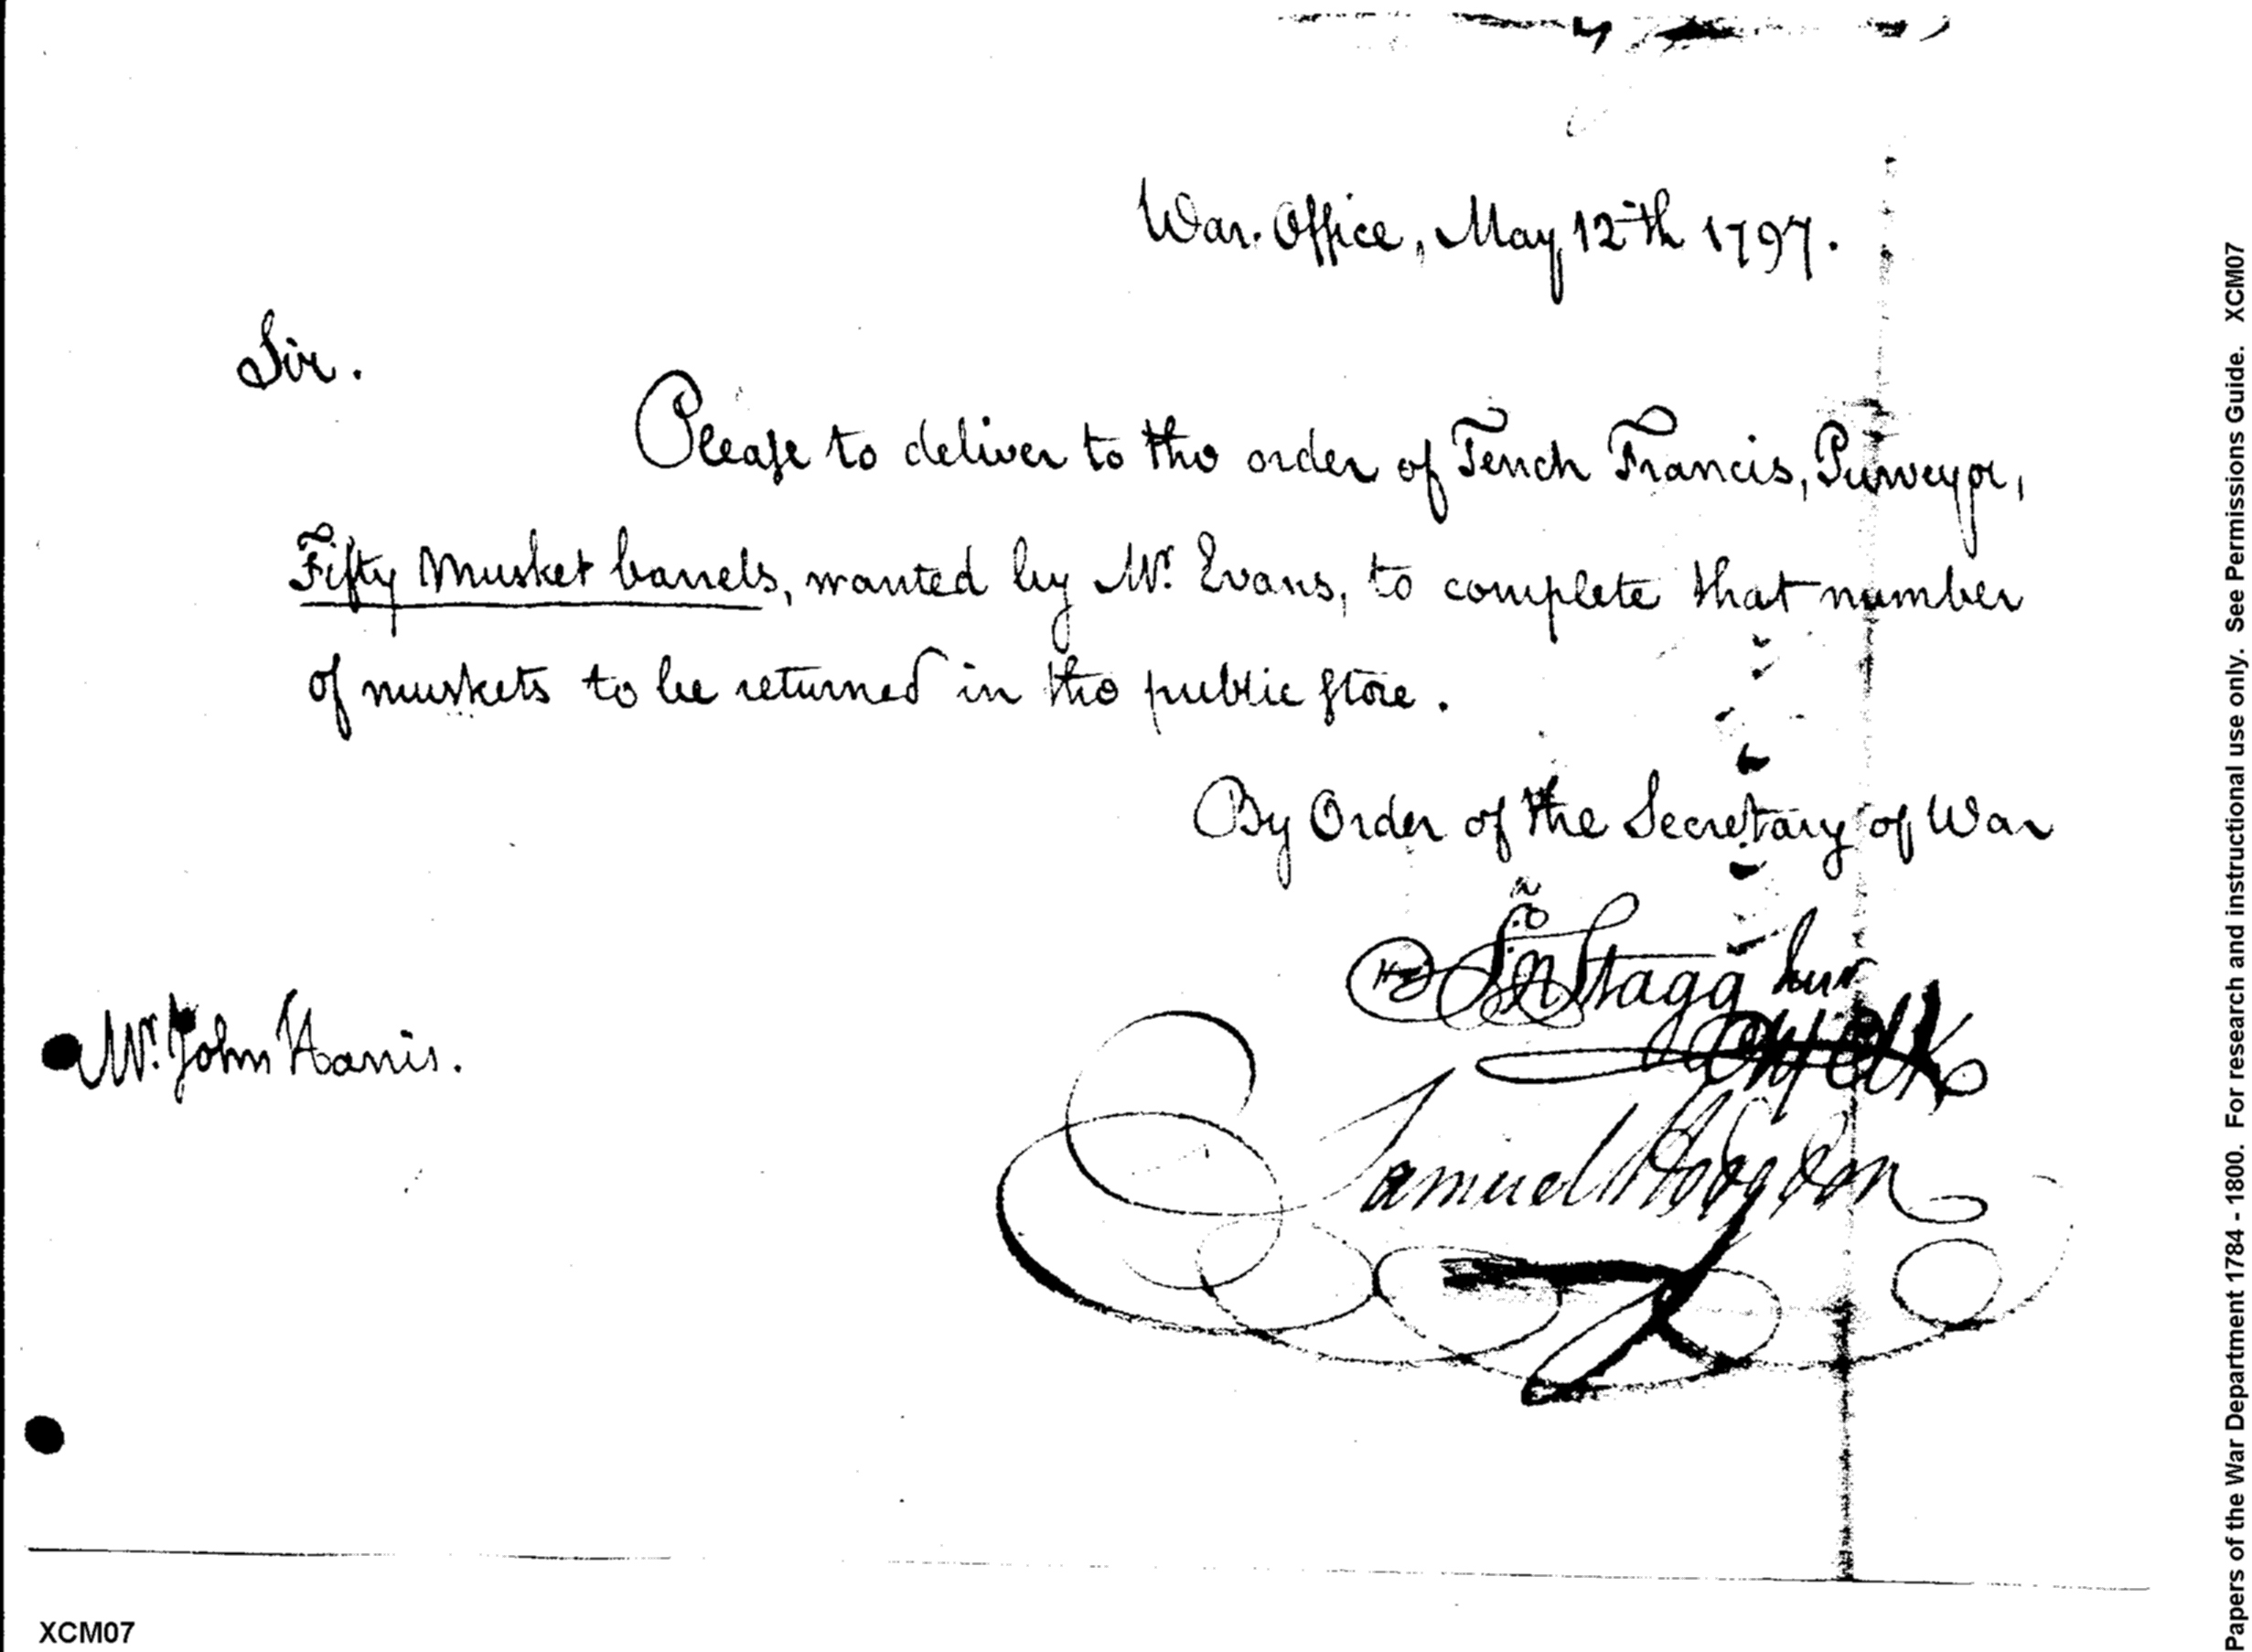 War. Office, May 12th 1797.
Sir.
Please to deliver to the order of Tench Francis, Purveyor,
Fifty Musket barrels, wanted by Mr. Evans, to complete that number
of muskets to be returned in the public store.
By Order of the Secretary of War
Jn Stagg Junr
Mr. John Harris.
Samuel Hodgdon
XCM07
Papers of the War Department 1784 - 1800. For research and instructional use only. See Permissions Guide. XCM07